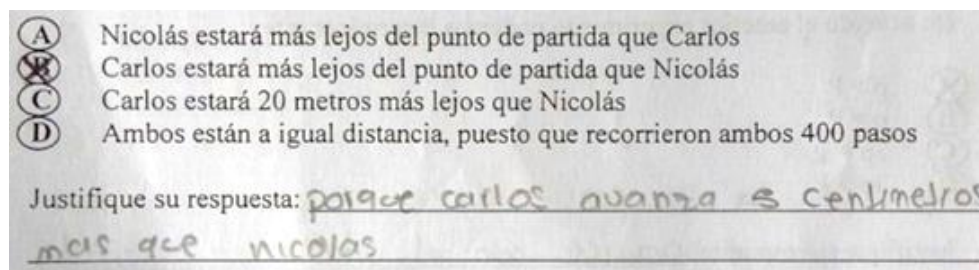 A Nicolás estará más lejos del punto de partida que Carlos
B Carlos estará más lejos del punto de partida que Nicolás
C Carlos estará 20 metros más lejos que Nicolás
D Ambos están a igual distancia, puesto que recorrieron ambos 400 pasos
Justifique su respuesta: porque carlos avanza 5 centimetro
mas que nicolas